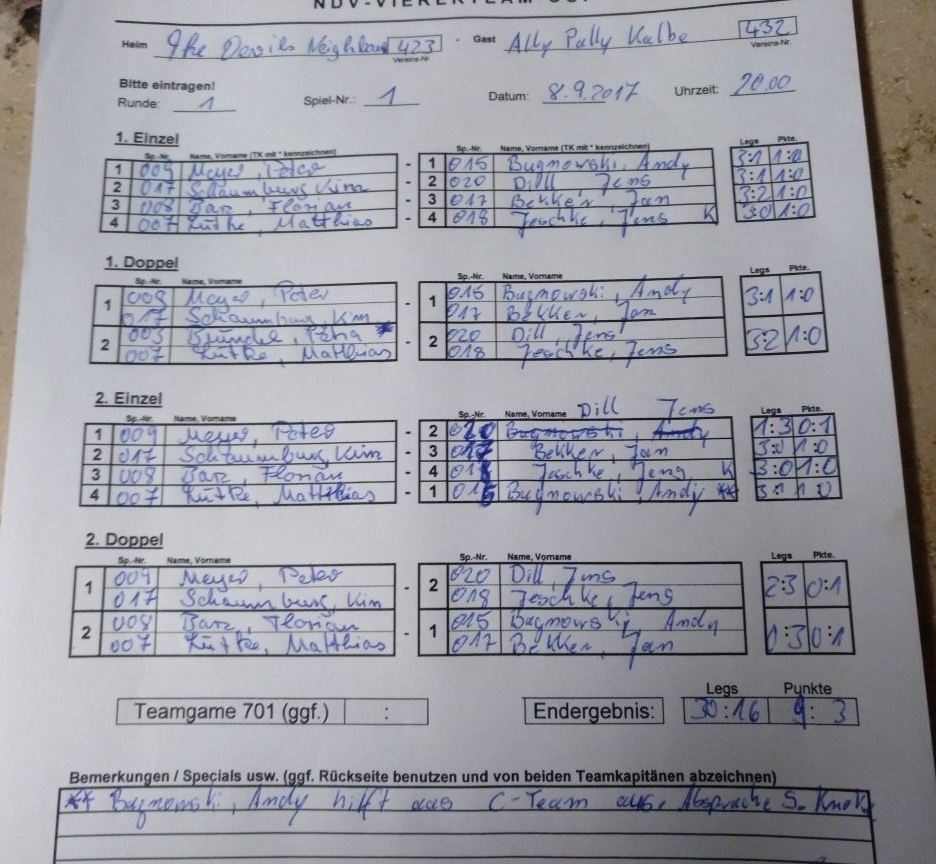 NDV-VIERERTEAM-CUP
Heim The Devils Neighbour 423 - Gast Ally Pally Kalbe 432
Vereins-Nr. Vereins-Nr.
Bitte eintragen!
Runde: 1 Spiel-Nr.: 1 Datum: 8.9.2017 Uhrzeit: 20.00
1. Einzel
Sp.-Nr. Name, Vorname (TK mit * kennzeichnen) Sp.-Nr. Name, Vorname (TK mit * kennzeichnen) Legs Pkte.
1 009 Meyer, Peter - 1 015 Bugnowski, Andy 3:1 1:0
2 017 Schaumburg, Kim - 2 020 Dill, Jens 3:1 1:0
3 008 Barz, Florian - 3 017 Bekker, Jan 3:2 1:0
4 007 Lütke, Matthias - 4 018 Jeschke, Jens K 3:0 1:0
1. Doppel
Sp.-Nr. Name, Vorname Sp.-Nr. Name, Vorname Legs Pkte.
1 009 Meyer, Peter - 1 015 Bugnowski, Andy 3:1 1:0
017 Schaumburg, Kim 017 Bekker, Jan
2 003 Petra * - 2 020 Dill, Jens 3:2 1:0
007 Lütke, Matthias 018 Jeschke, Jens
2. Einzel
Dill Jens
Sp.-Nr. Name, Vorname Sp.-Nr. Name, Vorname Legs Pkte.
1 009 Meyer, Peter - 2 020 Bugnowski, Andy 1:3 0:1
2 017 Schaumburg, Kim - 3 017 Bekker, Jan 3:0 1:0
3 008 Barz, Florian - 4 018 Jeschke, Jens K 3:0 1:0
4 007 Lütke, Matthias - 1 015 Bugnowski, Andy ** 1:0
2. Doppel
Sp.-Nr. Name, Vorname Sp.-Nr. Name, Vorname Legs Pkte.
1 009 Meyer, Peter - 2 020 Dill, Jens 2:3 0:1
017 Schaumburg, Kim 018 Jeschke, Jens
2 008 Barz, Florian - 1 015 Bugnowski, Andy 1:3 0:1
007 Lütke, Matthias 017 Bekker, Jan
Legs Punkte
Teamgame 701 (ggf.) : Endergebnis: 30:16 9:3
Bemerkungen / Specials usw. (ggf. Rückseite benutzen und von beiden Teamkapitänen abzeichnen)
** Bugnowski, Andy hilft aus C-Team aus. Absprache S.